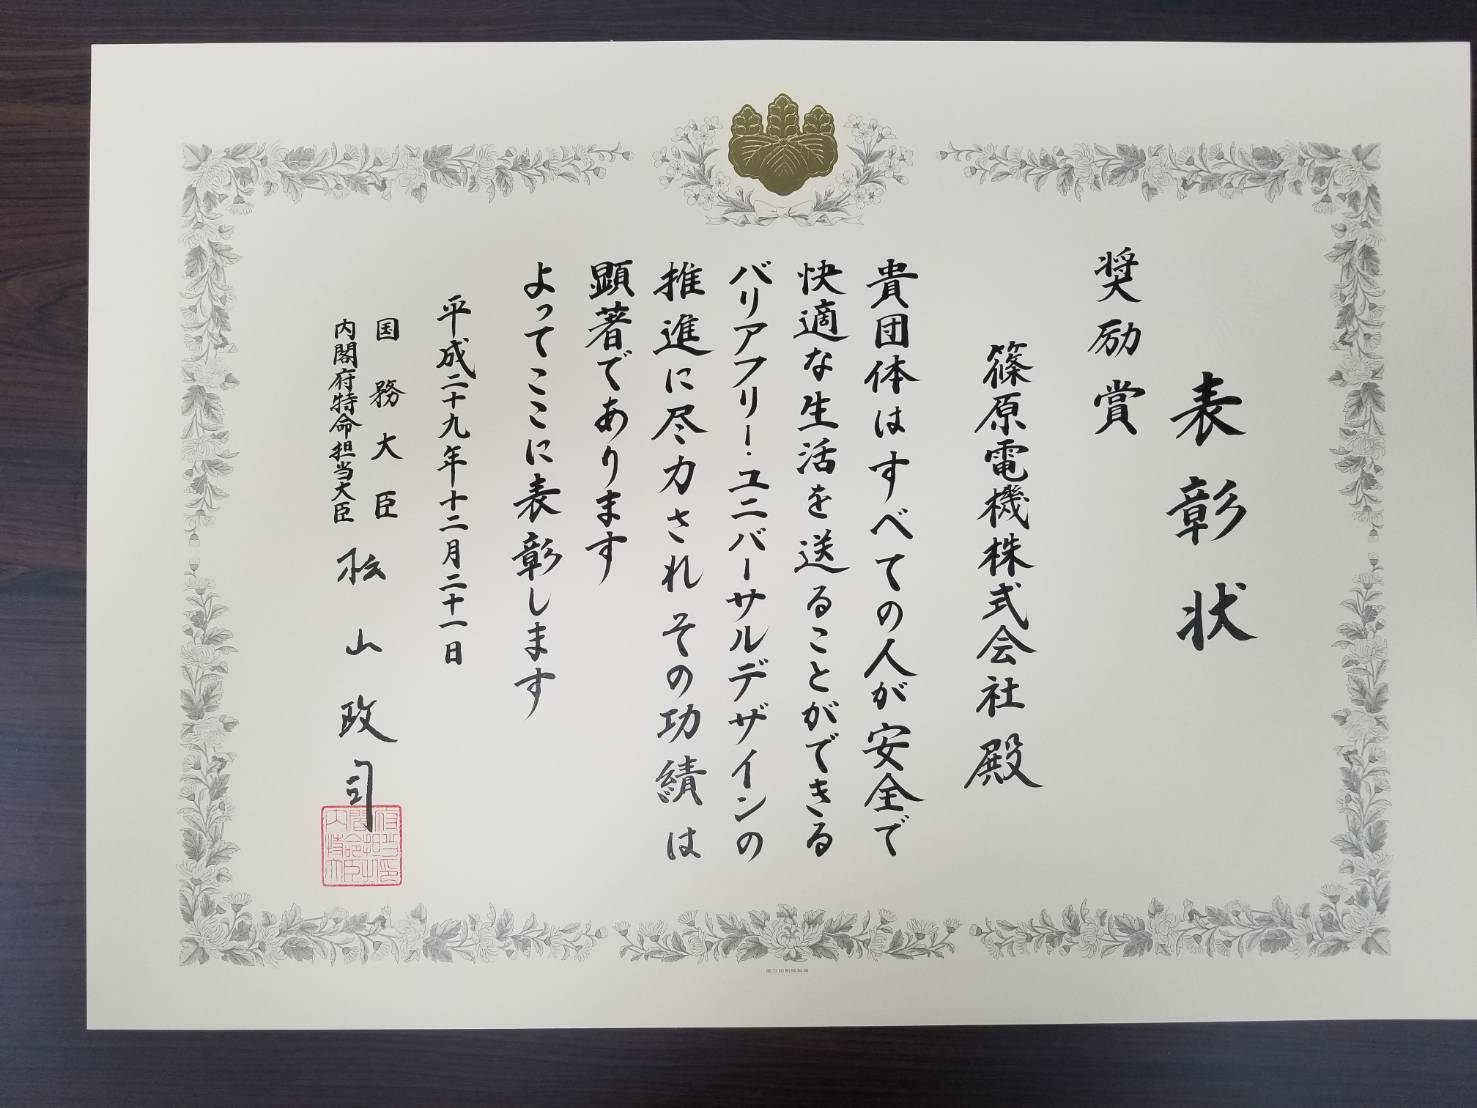 表彰状
奨励賞
篠原電機株式会社殿
貴団体はすべての人が安全で
快適な生活を送ることができる
バリアフリー・ユニバーサルデザインの
推進に尽力されその功績は
顕著であります
よってここに表彰します
平成二十九年十二月二十一日
国務大臣
内閣府特命担当大臣
松山政司